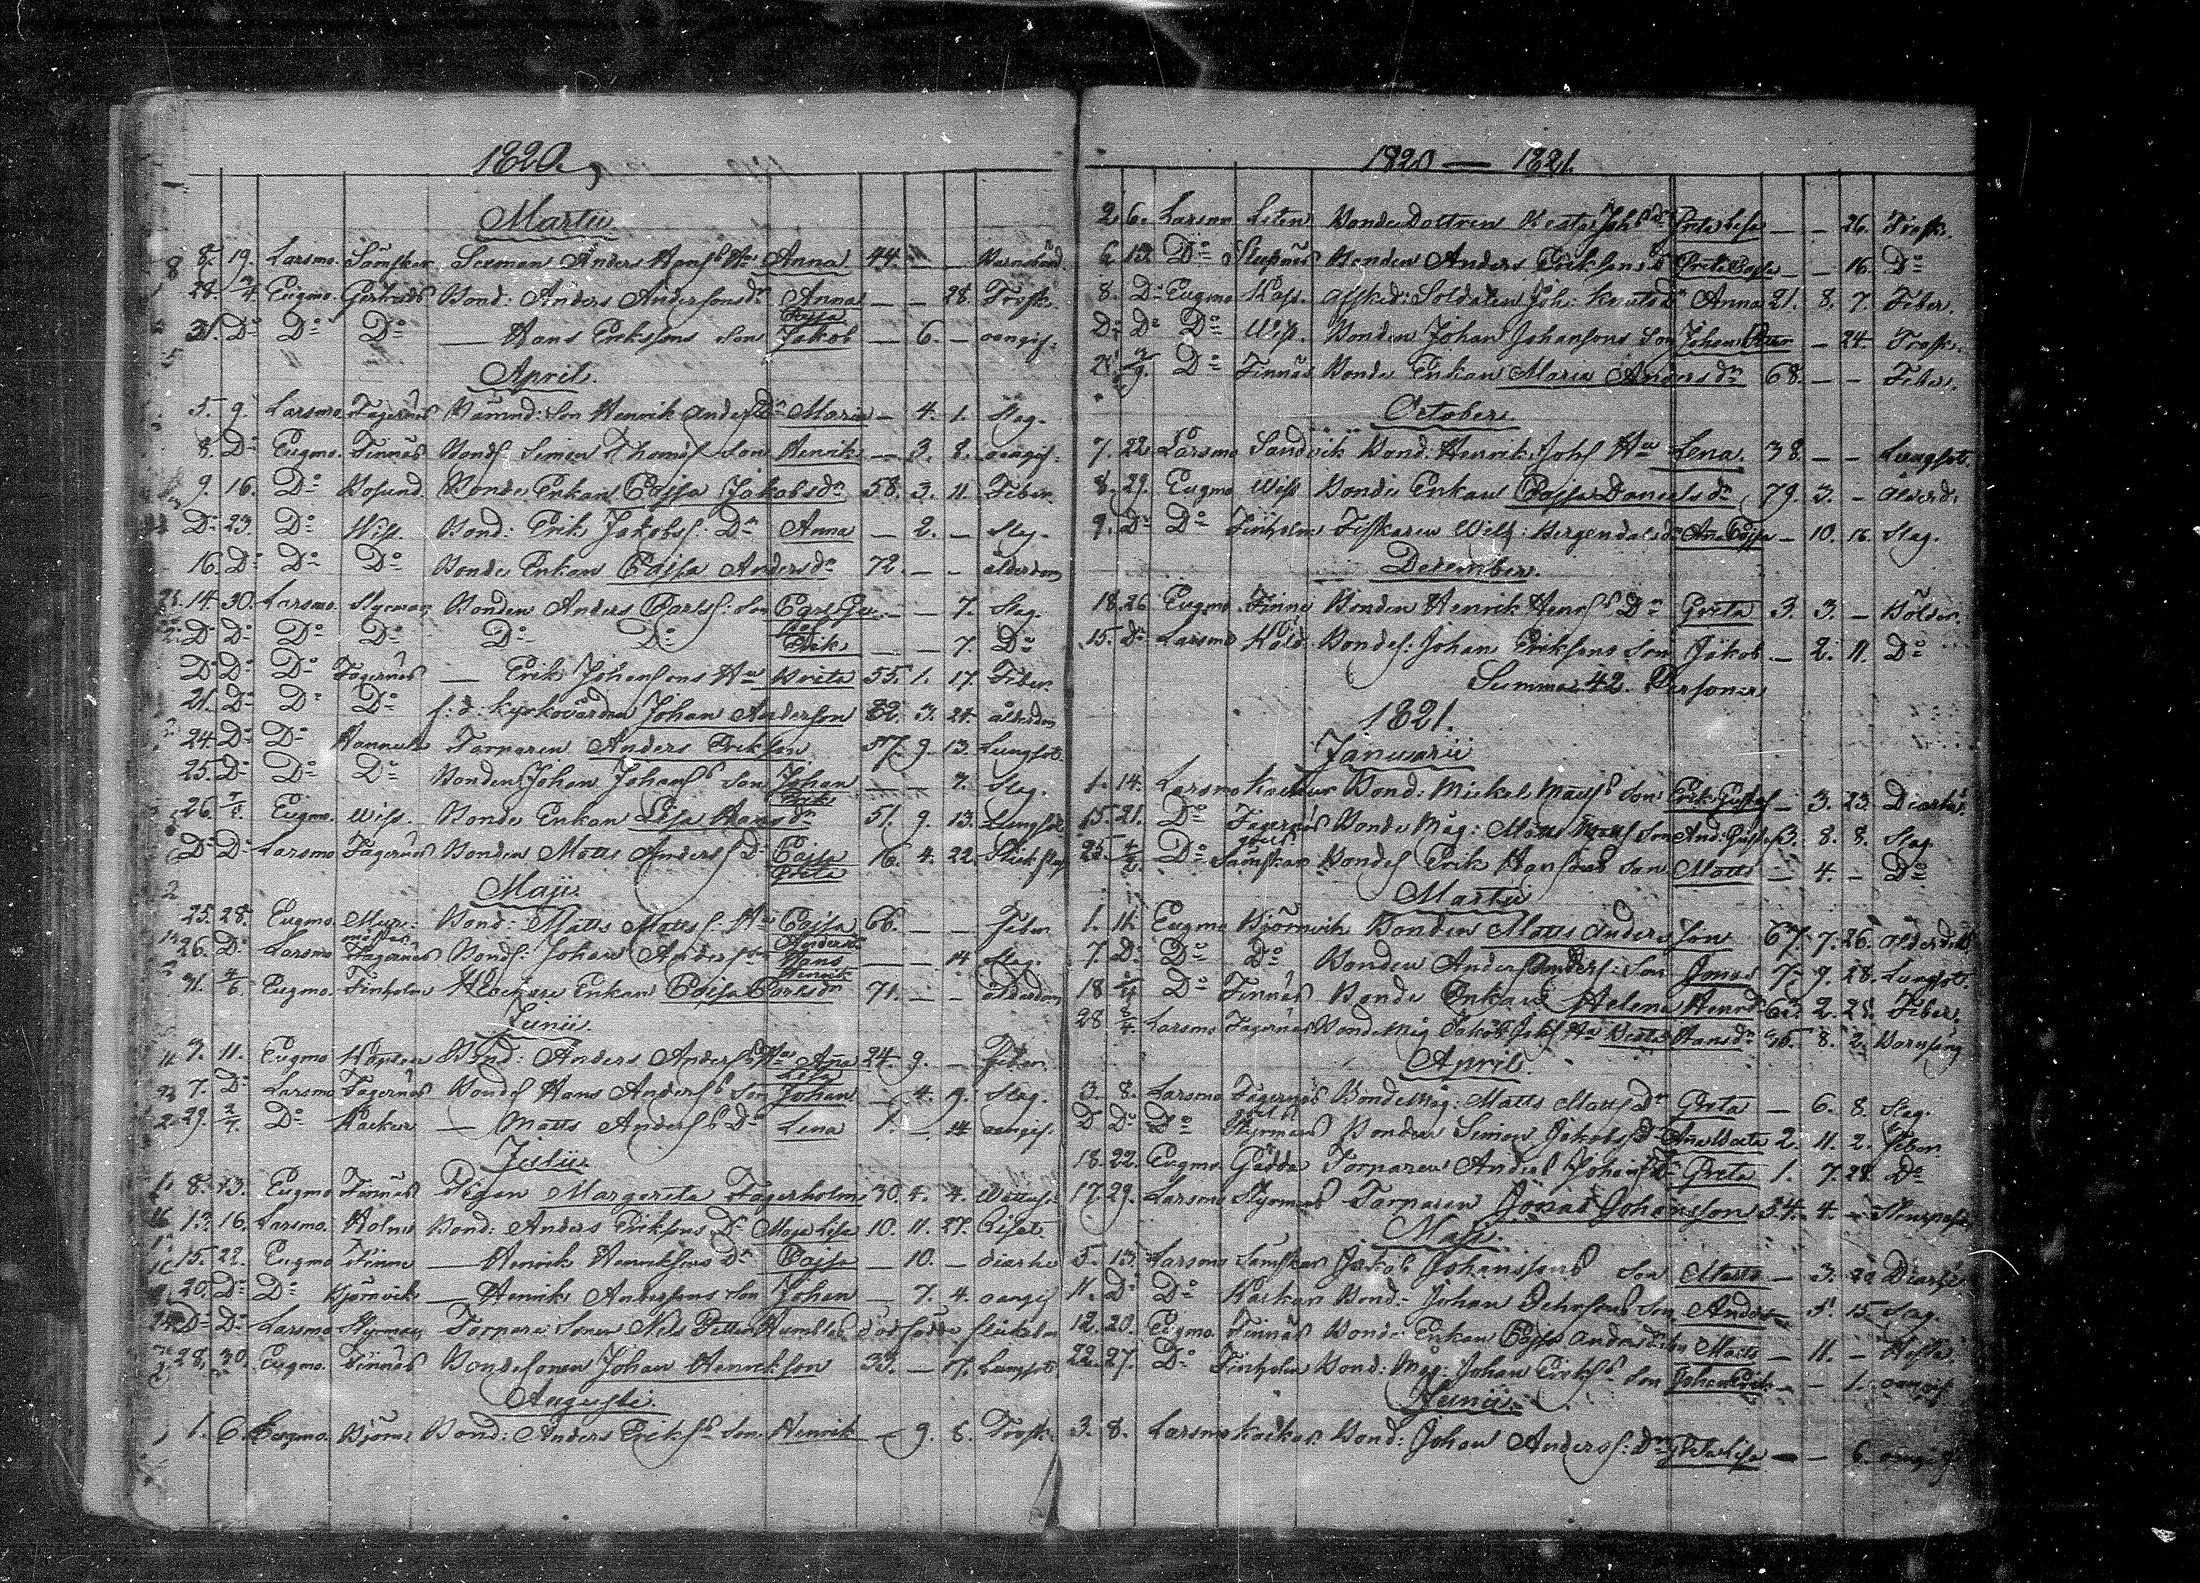 1820.
Martii
8. 19. Larsmo. Sämskar Sexman Anders Hans H:u Anna 44. — — Barnsbörd
28. 2/4. Eugmo. Gertruds Bond: Anders Andersons d:r Anna Cajsa — — 28. Trosk.
31. D:o D:o D:o — Hans Erikssons son Jakob — 6. — oangif:
April.
5. 9. Larsmo. Fagernäs Nämnd: son Henrik Anders D:r Maria — 4. 1. Slag.
8. D:o Eugmo. Finnäs Bonds. Simon Thomas son Henrik — 3. 8. oangif:
9. 16. D:o Bosund. Bonde Enkan Cajsa Jakobsd:r 58. 3. 11. Feber.
D:o 23. D:o Wist. Bond: Erik Jakobs: D:r Anna — 2. — Slag.
16. D:o D:o D:o Bonde Enkan Cajsa Andersd:r 72. — — ålderdom
14. 30. Larsmo. Bonden Anders Carls: son Carl Gu — — 7. Slag.
D:o D:o D:o D:o D:o D:o Erik — — 7. D:o
D:o D:o D:o Fagernäs — Erik Johansons H:u Brita 55. 1. 17. Feber.
21. D:o D:o D:o f: d: kyrkovärden Johan Anderson 82. 3. 24. ålderdom
24. D:o D:o Torparen Anders Erikson 57. 9. 13. Lungsot.
25. D:o D:o D:o Bonden Johan Johans son Johan Erik — — 7. Slag.
26. Eugmo. Wist. Bonde Enkan Lisa Hansd:r 51. 9. 13. Lungsot
D:o D:o Larsmo. Fagernäs Bonden Matts Anders D:r Cajsa Greta 16. 4. 22.
Maji.
25. 28. Eugmo. Bond: Matts Matts: H:u Cajsa Andersd:r 66. — — Feber.
26. D:o Larsmo Fagernäs Bonds: Johan Anders son Hans Henrik — — 14. Slag.
31. 4/6. Eugmo. Finholm Enkan Cajsa Carlsd:r 71. — — ålderdom
Junii.
9. 11. Eugmo Bond: Anders Anders H:u Anna Lisa 24. 9. — Feber.
7. D:o Larsmo Fagernäs Bonds Hans Anders son Johan — 4. 9. Slag.
29. 2/7. D:o Kackur — Matts Anders D:r Lena 1. — 14. oangif.
Julii.
8. 13. Eugmo Finnäs Pigan Margareta Fagerholm 30. 4. 4. Wattus
13. 16. Larsmo. Holm Bond: Anders Eriksons D:r Maja Lisa 10. 11. 27.
15. 22. Eugmo Finne — Henrik Henriksons D:r Cajsa — 10. — diarhe
20. D:o D:o Björnvik — Henrik Andersons son Johan — 7. 4. oangif
D:o D:o Larsmo Torpare Sonen Nils Petter Humbles
28. 30. Eugmo. Finnäs Bondesonen Johan Henrikson 33. — 17. Lungsot.
Augusti.
1. 6. Eugmo. Björnv Bond: Anders Eriks son Henrik — 9. 8. Trosk.
1820 — 1821.
2. 6. Larsmo Liten Bonde Dottren Beata Johsd:r Greta Lisa — — 26. Trosk.
6. 13. D:o Slepnäs Bonden Anders Eriksons D Greta Cajsa — — 16. D:o
8. D:o Eugmo Hast. afsked: Soldaten Joh: Knuts D:r Anna 21. 8. 7. Feber.
D:o D:o D:o Wist. Bonden Johan Johansons son Johan — — 24. Trosk.
D:o Finnäs Bonde Enkan Maria Andersd:r 68. — — Feber.
October.
7. 22. Larsmo Sandvik Bond: Henrik Johs H:u Lena. 38. — — Lungsot.
8. 29. Eugmo Wist Bonde Enkan Cajsa Danielsd:r 79. 3. — Ålderd:
9. D:o D:o Finholm Fiskaren Wilh: Bergendals d:r Ana Cajsa — 10. 16. Slag.
December.
18. 26. Eugmo. Finne Bonden Henrik Henrs D:r Greta 3. 3. — Bölder.
15. D:o Larsmo Holm Bondes: Johan Eriksons Son Jakob — 2. 11. D:o
Summa 42. Personer
1821.
Januarii
1. 14. Larsmo Kackur Bond: Mickel Matts son Erik Gustaf — 3. 23. Diarhé.
15. 21. D:o Fagernäs Bonde Måg: Matts Matts son And: Gustaf 3. 8. 8. Slag.
25. 4/2. D:o Sämskar Bondes Erik Hansons son Matts — 4. — D:o
Martii
1. 11. Eugmo Björnvik Bonden Matts Anderson 67. 7. 26. ålderdom
7. D:o D:o D:o Bonden Anders Anders: son Jonas 7. 9. 28. Lungsot.
18 D:o Finnäs Bonde Enkan Helena 2. 28. Feber.
28 Larsmo Fagernäs Bonde Måg Jakob Jakobs H:u Beata Hansd:r 36. 8. 2. Barnsäng
April.
3. 8. Larsmo Fagernäs Bonde Måg: Matts Matts D:r Greta — 6. 8. Slag.
D:o D:o D:o Bonden Simon Jakobs D:r Ana Beata 2. 11. 2. Feber.
18. 22. Eugmo Gädda Torparen Anders Johans D:r Greta 1. 7. 28. D:o
17. 29. Larsmo Torparen Jonas Johansson 34. 4. —
Maji.
5. 13. Larsmo Sämskar Jakob Johanssons son Matts — 3. 29 Diarhé
11. D:o D:o Kackur Bond: Johan Johnsons son Anders — 5. 15. Slag.
12. 20. Eugmo. Finnäs Bonde Enkan Cajsa Andersd:r son Matts — 11. — Hosta.
22. 27. D:o Finholm Bond: Måg: Johan Eriks son Johan Erik — — 1. oangif
Junii.
3. 8. Larsmo Kackur. Bond: Johan Anders: D:r Greta Lisa — — 6. oangif.